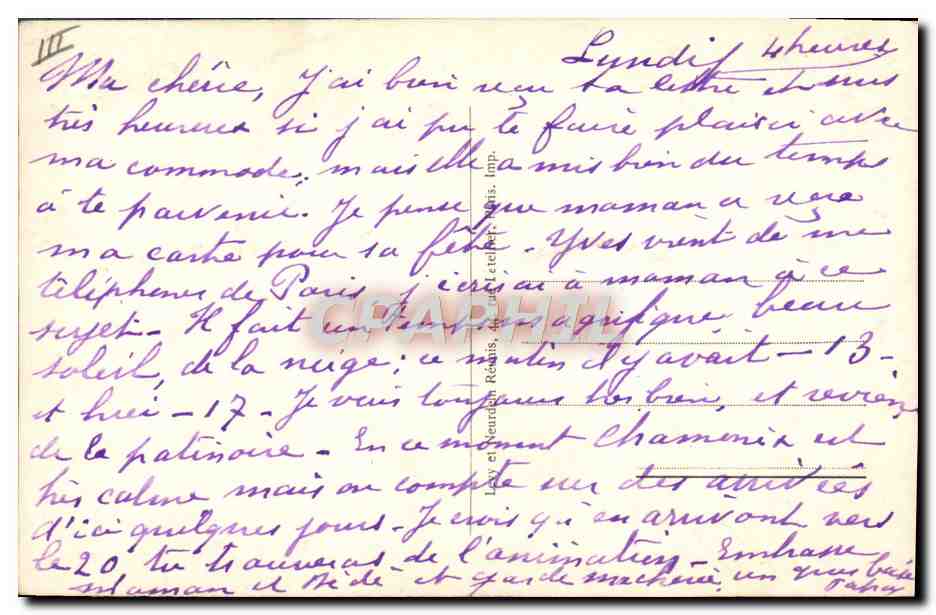 III
Lundi 4 heures
Ma chérie, J'ai bien reçu ta lettre et suis
très heureux si j'ai pu te faire plaisir avec
ma commode, mais elle a mis bien du temps
à te parvenir. Je pense que maman a reçu
ma carte pour sa fête. Yves vient de me
téléphoner de Paris, j'écrirai à maman à ce
sujet. Il fait un temps magnifique, beau
soleil, de la neige; ce matin il y avait - 13 -
et hier - 17 - Je vais toujours très bien, et reviens
de la patinoire - En ce moment Chamonix est
très calme mais on compte sur des arrivées
d'ici quelques jours - Je crois qu'en arrivant vers
le 20 tu trouveras de l'animation - Embrasse
Maman et Dédé et garde ma chérie, un gros baiser
Papa
Lévy et Neurdein Réunis, 44, rue Letellier, Paris. Imp.
CPAPHIL